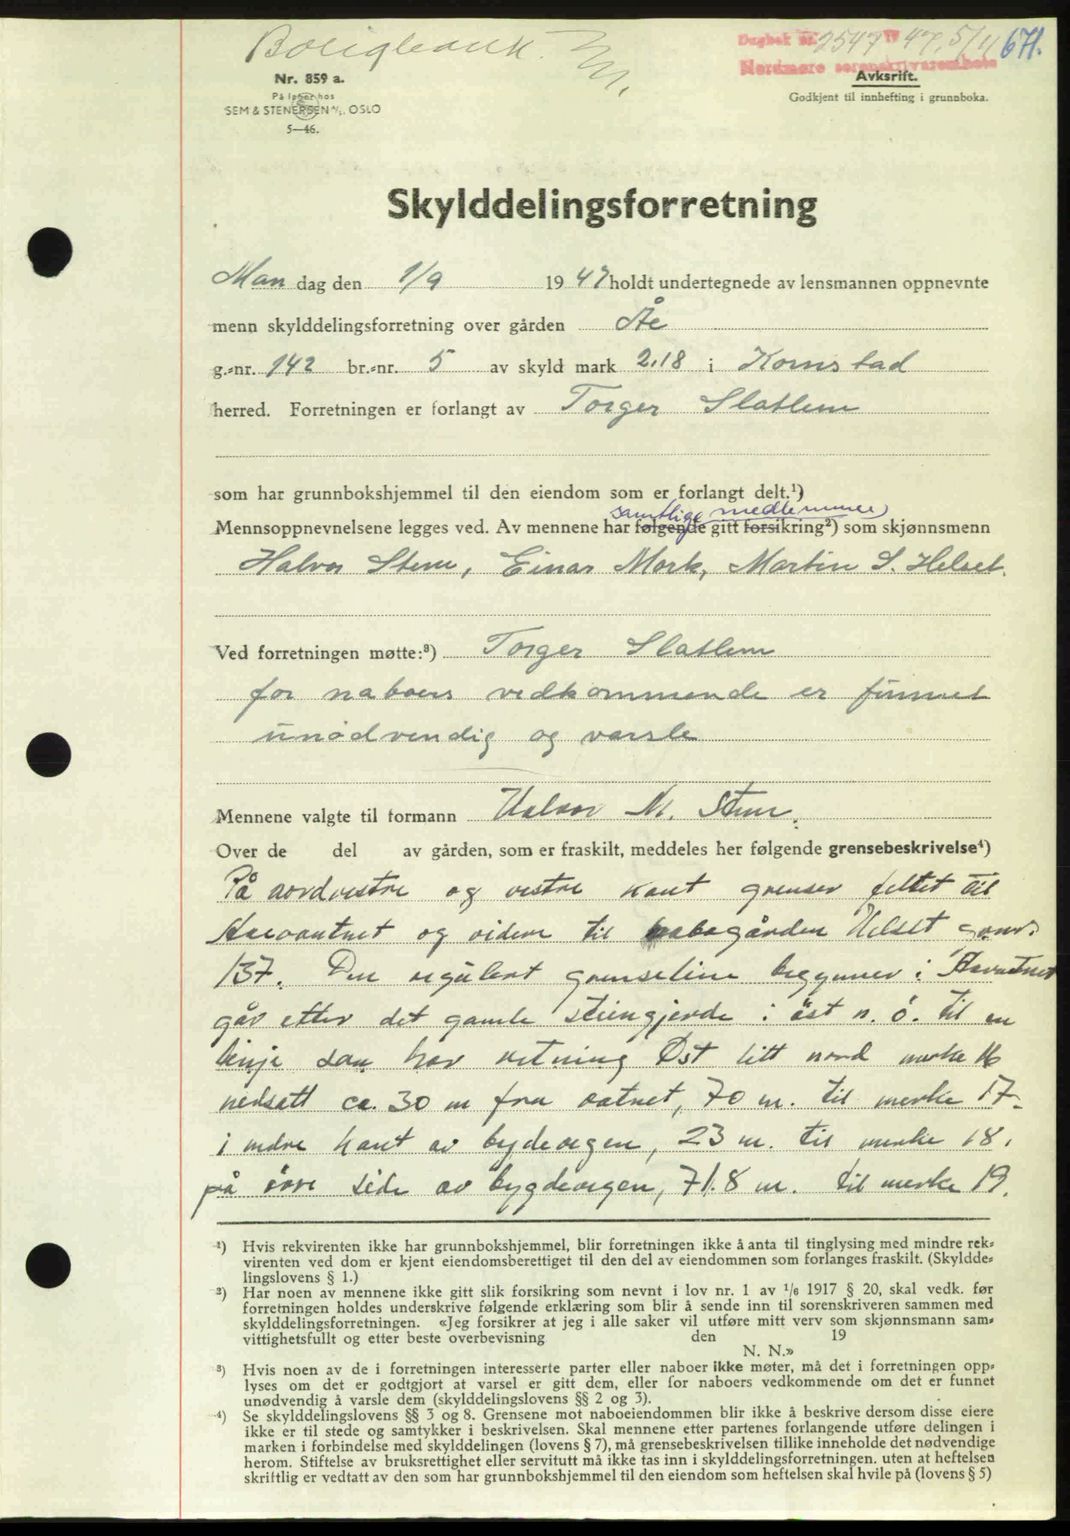 Boligbank.
Dagbok nr. 2547 19 47, 5/11 671.
Nordmøre sorenskriverembete
Nr. 859 a.
På lager hos
SEM & STENERSEN A/S. OSLO
5—46.
Avkskrift.
Godkjent til innhefting i grunnboka.
Skylddelingsforretning
Man dag den 1/9 19 47 holdt undertegnede av lensmannen oppnevnte
menn skylddelingsforretning over gården Åe
g.-nr. 142 br.-nr. 5 av skyld mark 2.18 i Kornstad
herred. Forretningen er forlangt av Torger Slatlem
som har grunnbokshjemmel til den eiendom som er forlangt delt.¹)
samtlige medlemmer
Mennsoppnevnelsene legges ved. Av mennene har følgende gitt forsikring²) som skjønnsmenn
Halvor Stene, Einar Mork, Martin S. Helset.
Ved forretningen møtte:³) Torger Slatlem
for naboers vedkommende er funnet
unødvendig og varsle
Mennene valgte til formann Halvor N. Stene.
Over de del av gården, som er fraskilt, meddeles her følgende grensebeskrivelse⁴)
På nordvestre og vestre kant grenser feltet til
og videre til nabogården Helset
137. Den regulert grenselinie begynner i
går etter det gamle steingjerde i øst n. ö. til en
linje som har retning Øst litt nord merke 16
nedsatt ca. 30 m fra vatnet, 70 m. til merke 17.
i indre kant av bydevegen, 23 m. til merke 18,
på övre side av bygdevegen, 71.8 m. til merke 19.
¹) Hvis rekvirenten ikke har grunnbokshjemmel, blir forretningen ikke å anta til tinglysing med mindre rek-
virenten ved dom er kjent eiendomsberettiget til den del av eiendommen som forlanges fraskilt. (Skyldde-
lingslovens § 1.)
²) Har noen av mennene ikke gitt slik forsikring som nevnt i lov nr. 1 av 1/6 1917 § 20, skal vedk. før
forretningen holdes underskrive følgende erklæring som blir å sende inn til sorenskriveren sammen med
skylddelingsforretningen. «Jeg forsikrer at jeg i alle saker vil utføre mitt verv som skjønnsmann sam-
vittighetsfullt og etter beste overbevisning den 19
N. N.»
³) Hvis noen av de i forretningen interesserte parter eller naboer ikke møter, må det i forretningen opp-
lyses om det er godtgjort at varsel er gitt dem, eller for naboers vedkommende om det er funnet
unødvendig å varsle dem (skylddelingslovens §§ 2 og 3).
⁴) Se skylddelingslovens §§ 3 og 8. Grensene mot naboeiendommen blir ikke å beskrive dersom disse eiere
ikke er til stede og samtykker i beskrivelsen. Skal mennene etter partenes forlangende utføre delingen i
marken i forbindelse med skylddelingen (lovens § 7), må grensebeskrivelsen tillike inneholde det nødvendige
herom. Stiftelse av bruksrettighet eller servitutt må ikke tas inn i skylddelingsforretningen. uten at heftelsen
skriftlig er vedtatt av den som har grunnbokshjemmel til den eiendom som heftelsen skal hvile på (lovens § 5)